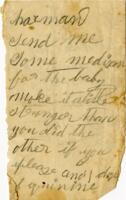 harman
Send me
Some medison
for the baby
make it a little
stronger than
you did the
other if you
please and 1 dose
of quinine